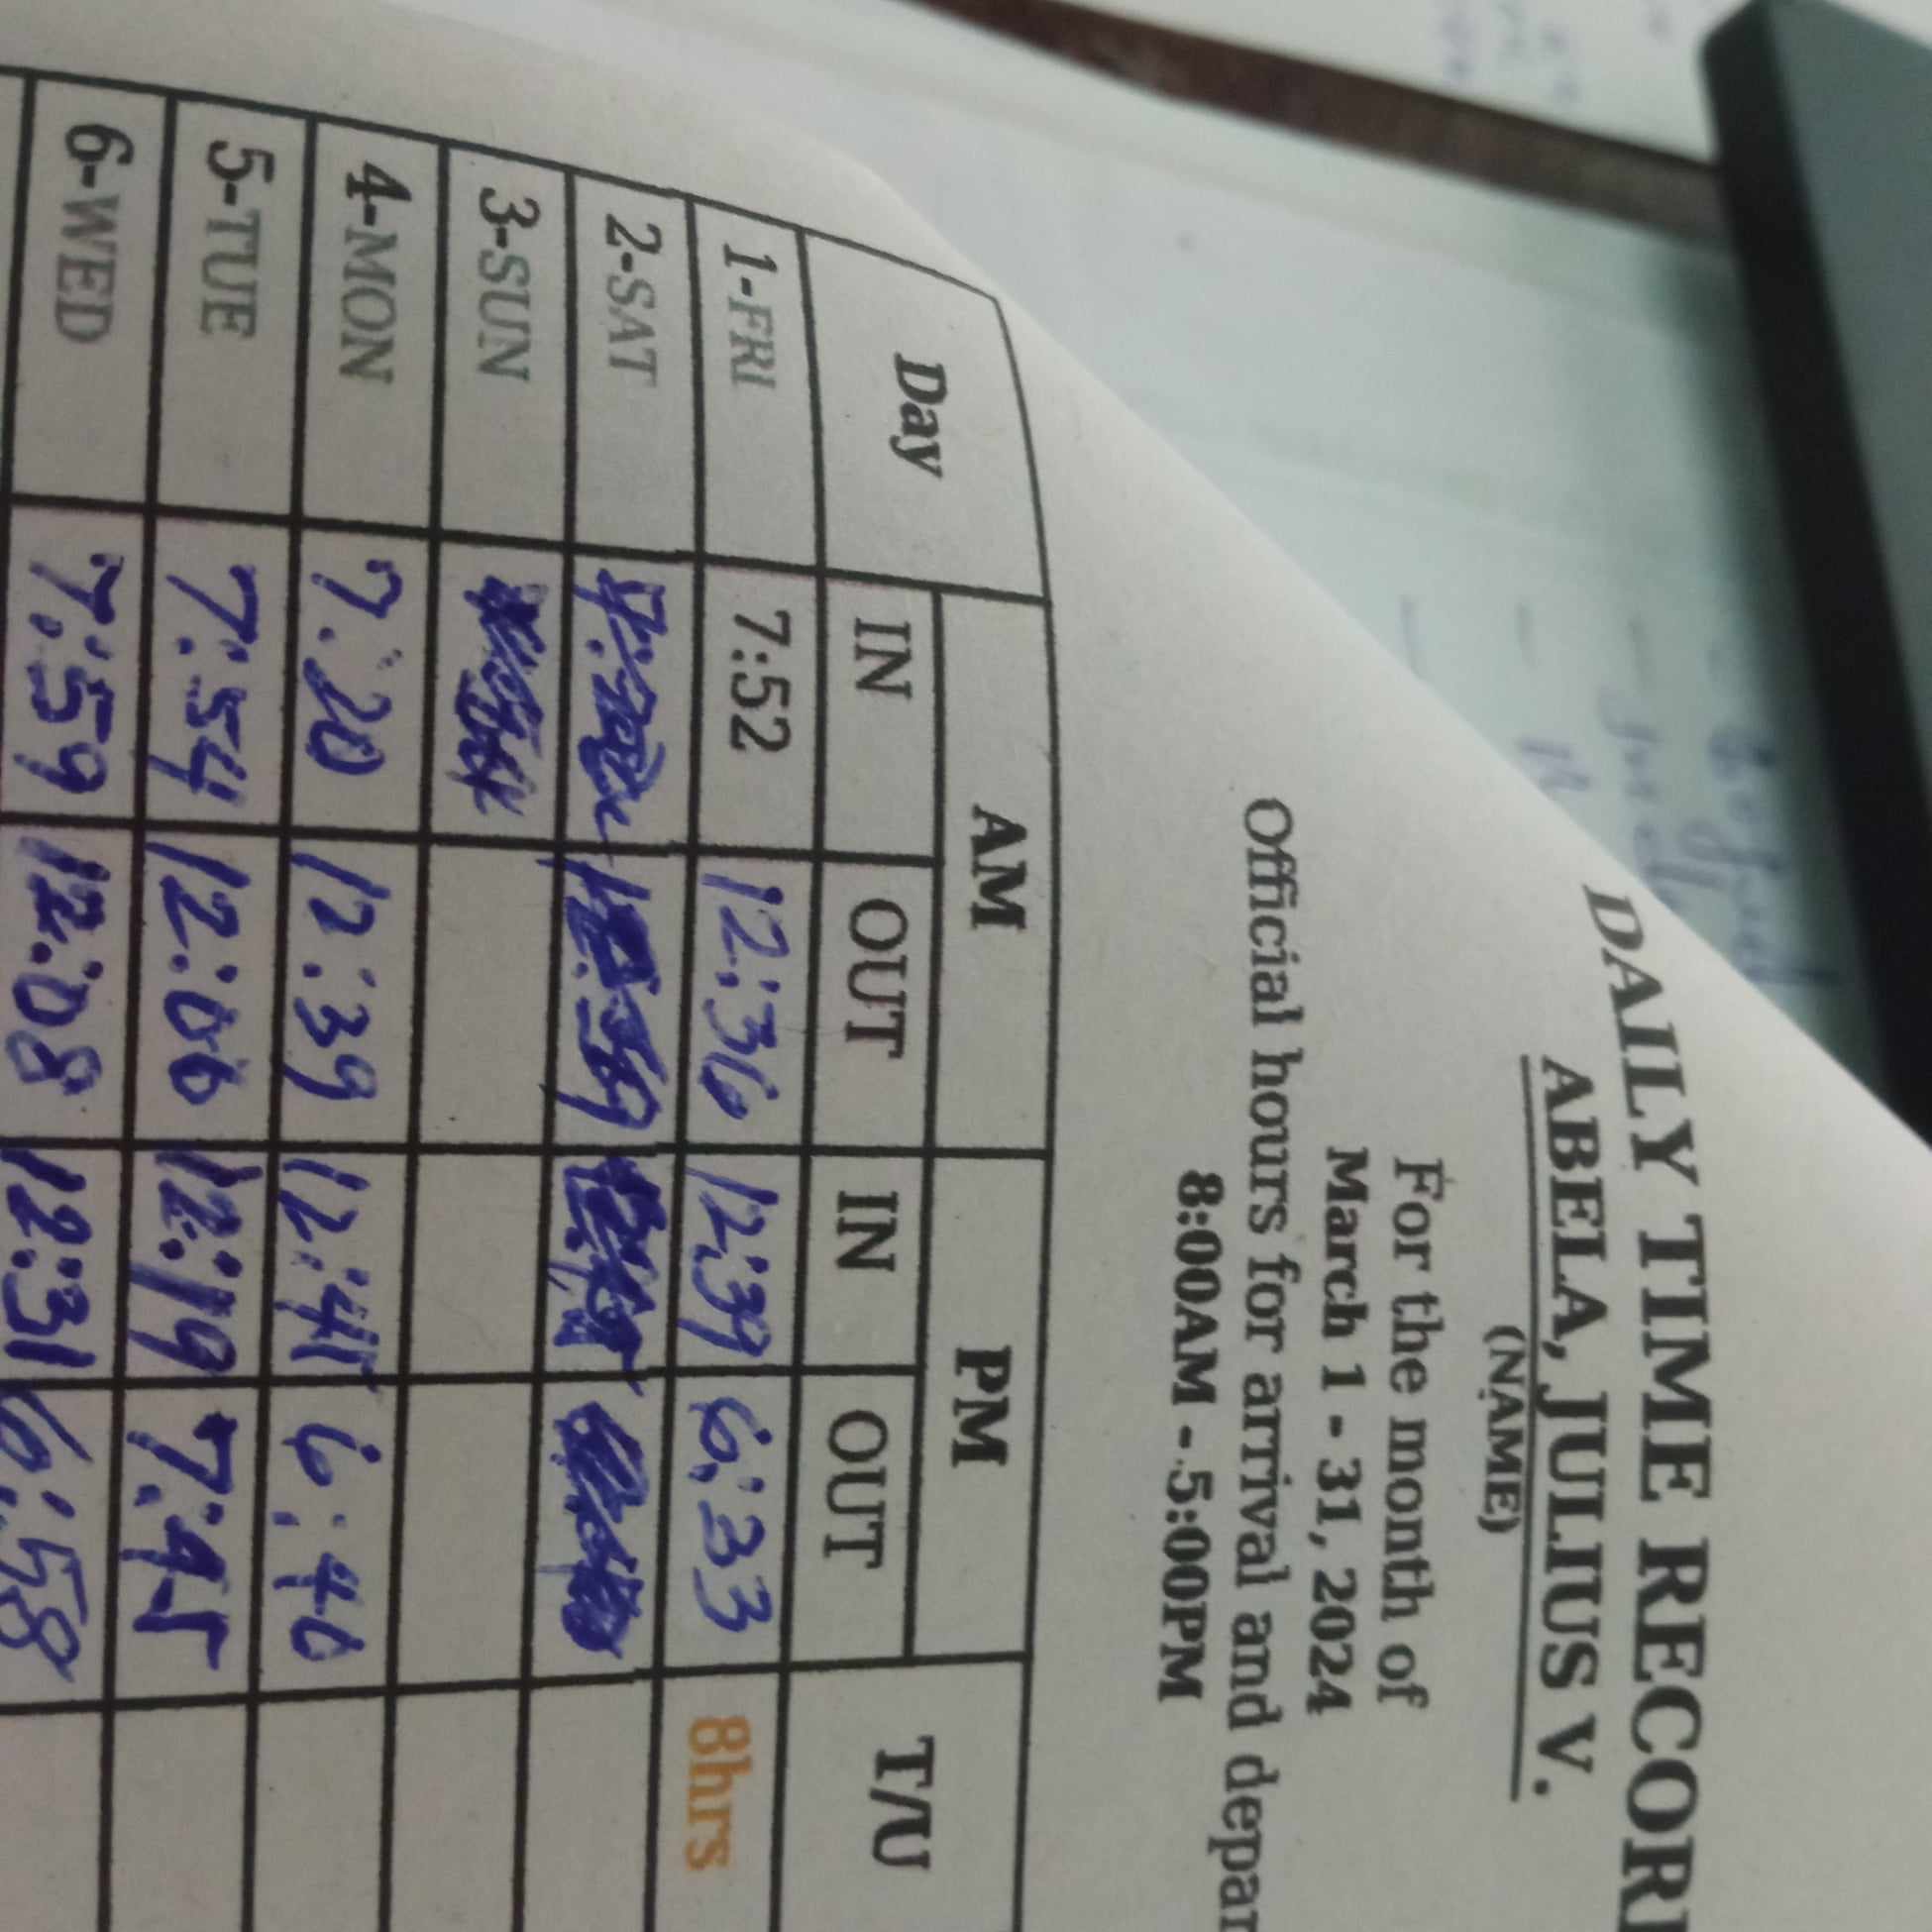 DAILY TIME RECOR
ABELA, JULIUS V.
(NAME)
For the month of
March 1 - 31, 2024
Official hours for arrival and depar
8:00AM - 5:00PM
Day AM PM T/U
IN OUT IN OUT
1-FRI 7:52 12:36 12:39 6:33 8hrs
2-SAT
3-SUN
4-MON 7:20 12:39 12:41 6:40
5-TUE 7:54 12:06 12:19 7:45
6-WED 7:59 12:08 12:31 6:58